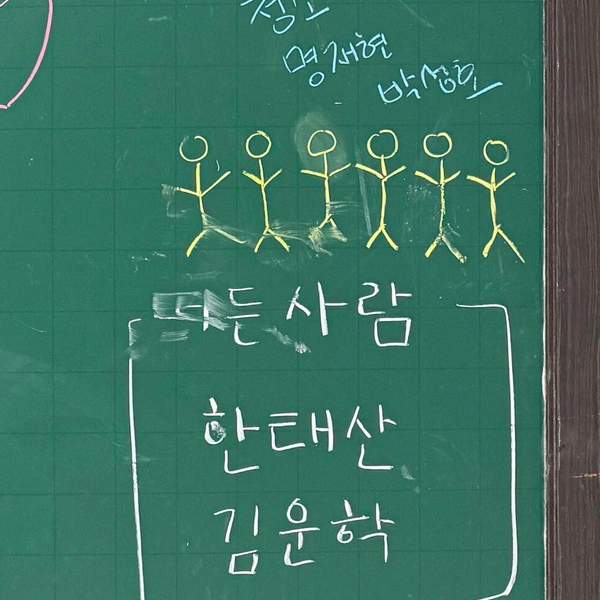 명재현
박성호
떠든 사람
한태산
김운학